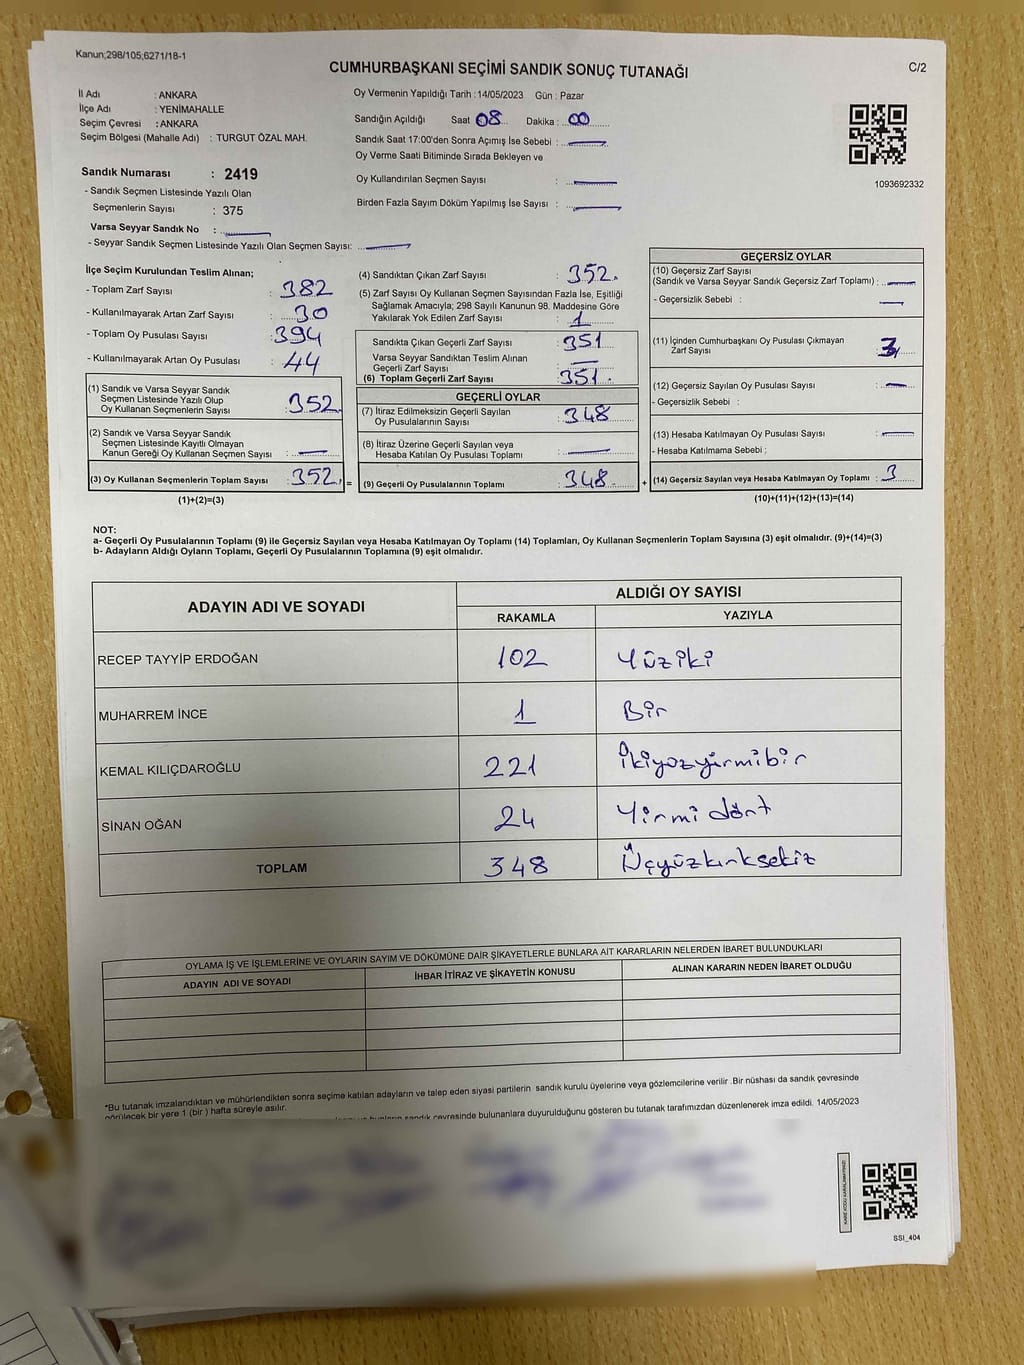 Kanun;298/105;6271/18-1
CUMHURBAŞKANI SEÇİMİ SANDIK SONUÇ TUTANAĞI
C/2
İl Adı : ANKARA
İlçe Adı : YENİMAHALLE
Seçim Çevresi : ANKARA
Seçim Bölgesi (Mahalle Adı) : TURGUT ÖZAL MAH.
Sandık Numarası : 2419
- Sandık Seçmen Listesinde Yazılı Olan
Seçmenlerin Sayısı : 375
Varsa Seyyar Sandık No :
- Seyyar Sandık Seçmen Listesinde Yazılı Olan Seçmen Sayısı:
Oy Vermenin Yapıldığı Tarih : 14/05/2023 Gün : Pazar
Sandığın Açıldığı Saat 08 Dakika : 00
Sandık Saat 17:00'den Sonra Açımış İse Sebebi :
Oy Verme Saati Bitiminde Sırada Bekleyen ve
Oy Kullandırılan Seçmen Sayısı :
Birden Fazla Sayım Döküm Yapılmış İse Sayısı :
1093692332
İlçe Seçim Kurulundan Teslim Alınan;
- Toplam Zarf Sayısı : 382
- Kullanılmayarak Artan Zarf Sayısı : 30
- Toplam Oy Pusulası Sayısı : 394
- Kullanılmayarak Artan Oy Pusulası : 44
(1) Sandık ve Varsa Seyyar Sandık
Seçmen Listesinde Yazılı Olup
Oy Kullanan Seçmenlerin Sayısı : 352
(2) Sandık ve Varsa Seyyar Sandık
Seçmen Listesinde Kayıtlı Olmayan
Kanun Gereği Oy Kullanan Seçmen Sayısı :
(3) Oy Kullanan Seçmenlerin Toplam Sayısı : 352.
(1)+(2)=(3)
(4) Sandıktan Çıkan Zarf Sayısı : 352.
(5) Zarf Sayısı Oy Kullanan Seçmen Sayısından Fazla İse, Eşitliği
Sağlamak Amacıyla; 298 Sayılı Kanunun 98. Maddesine Göre
Yakılarak Yok Edilen Zarf Sayısı : 1
Sandıkta Çıkan Geçerli Zarf Sayısı : 351
Varsa Seyyar Sandıktan Teslim Alınan
Geçerli Zarf Sayısı :
(6) Toplam Geçerli Zarf Sayısı : 351.
GEÇERLİ OYLAR
(7) İtiraz Edilmeksizin Geçerli Sayılan
Oy Pusulalarının Sayısı : 348
(8) İtiraz Üzerine Geçerli Sayılan veya
Hesaba Katılan Oy Pusulası Toplamı :
= (9) Geçerli Oy Pusulalarının Toplamı : 348.
GEÇERSİZ OYLAR
(10) Geçersiz Zarf Sayısı
(Sandık ve Varsa Seyyar Sandık Geçersiz Zarf Toplamı) :
- Geçersizlik Sebebi :
(11) İçinden Cumhurbaşkanı Oy Pusulası Çıkmayan
Zarf Sayısı : 3
(12) Geçersiz Sayılan Oy Pusulası Sayısı :
- Geçersizlik Sebebi :
(13) Hesaba Katılmayan Oy Pusulası Sayısı :
- Hesaba Katılmama Sebebi ;
+ (14) Geçersiz Sayılan veya Hesaba Katılmayan Oy Toplamı : 3
(10)+(11)+(12)+(13)=(14)
NOT:
a- Geçerli Oy Pusulalarının Toplamı (9) ile Geçersiz Sayılan veya Hesaba Katılmayan Oy Toplamı (14) Toplamları, Oy Kullanan Seçmenlerin Toplam Sayısına (3) eşit olmalıdır. (9)+(14)=(3)
b- Adayların Aldığı Oyların Toplamı, Geçerli Oy Pusulalarının Toplamına (9) eşit olmalıdır.
ADAYIN ADI VE SOYADI ALDIĞI OY SAYISI
RAKAMLA YAZIYLA
RECEP TAYYİP ERDOĞAN 102 Yüziki
MUHARREM İNCE 1 Bir
KEMAL KILIÇDAROĞLU 221 İkiyüzyirmibir
SİNAN OĞAN 24 Yirmi dört
TOPLAM 348 Üçyüzkırksekiz
OYLAMA İŞ VE İŞLEMLERİNE VE OYLARIN SAYIM VE DÖKÜMÜNE DAİR ŞİKAYETLERLE BUNLARA AİT KARARLARIN NELERDEN İBARET BULUNDUKLARI
ADAYIN ADI VE SOYADI İHBAR İTİRAZ VE ŞİKAYETİN KONUSU ALINAN KARARIN NEDEN İBARET OLDUĞU
*Bu tutanak imzalandıktan ve mühürlendikten sonra seçime katılan adayların ve talep eden siyasi partilerin sandık kurulu üyelerine veya gözlemcilerine verilir .Bir nüshası da sandık çevresinde
görülecek bir yere 1 (bir ) hafta süreyle asılır.
sandık çevresinde bulunanlara duyurulduğunu gösteren bu tutanak tarafımızdan düzenlenerek imza edildi. 14/05/2023
SSI_404